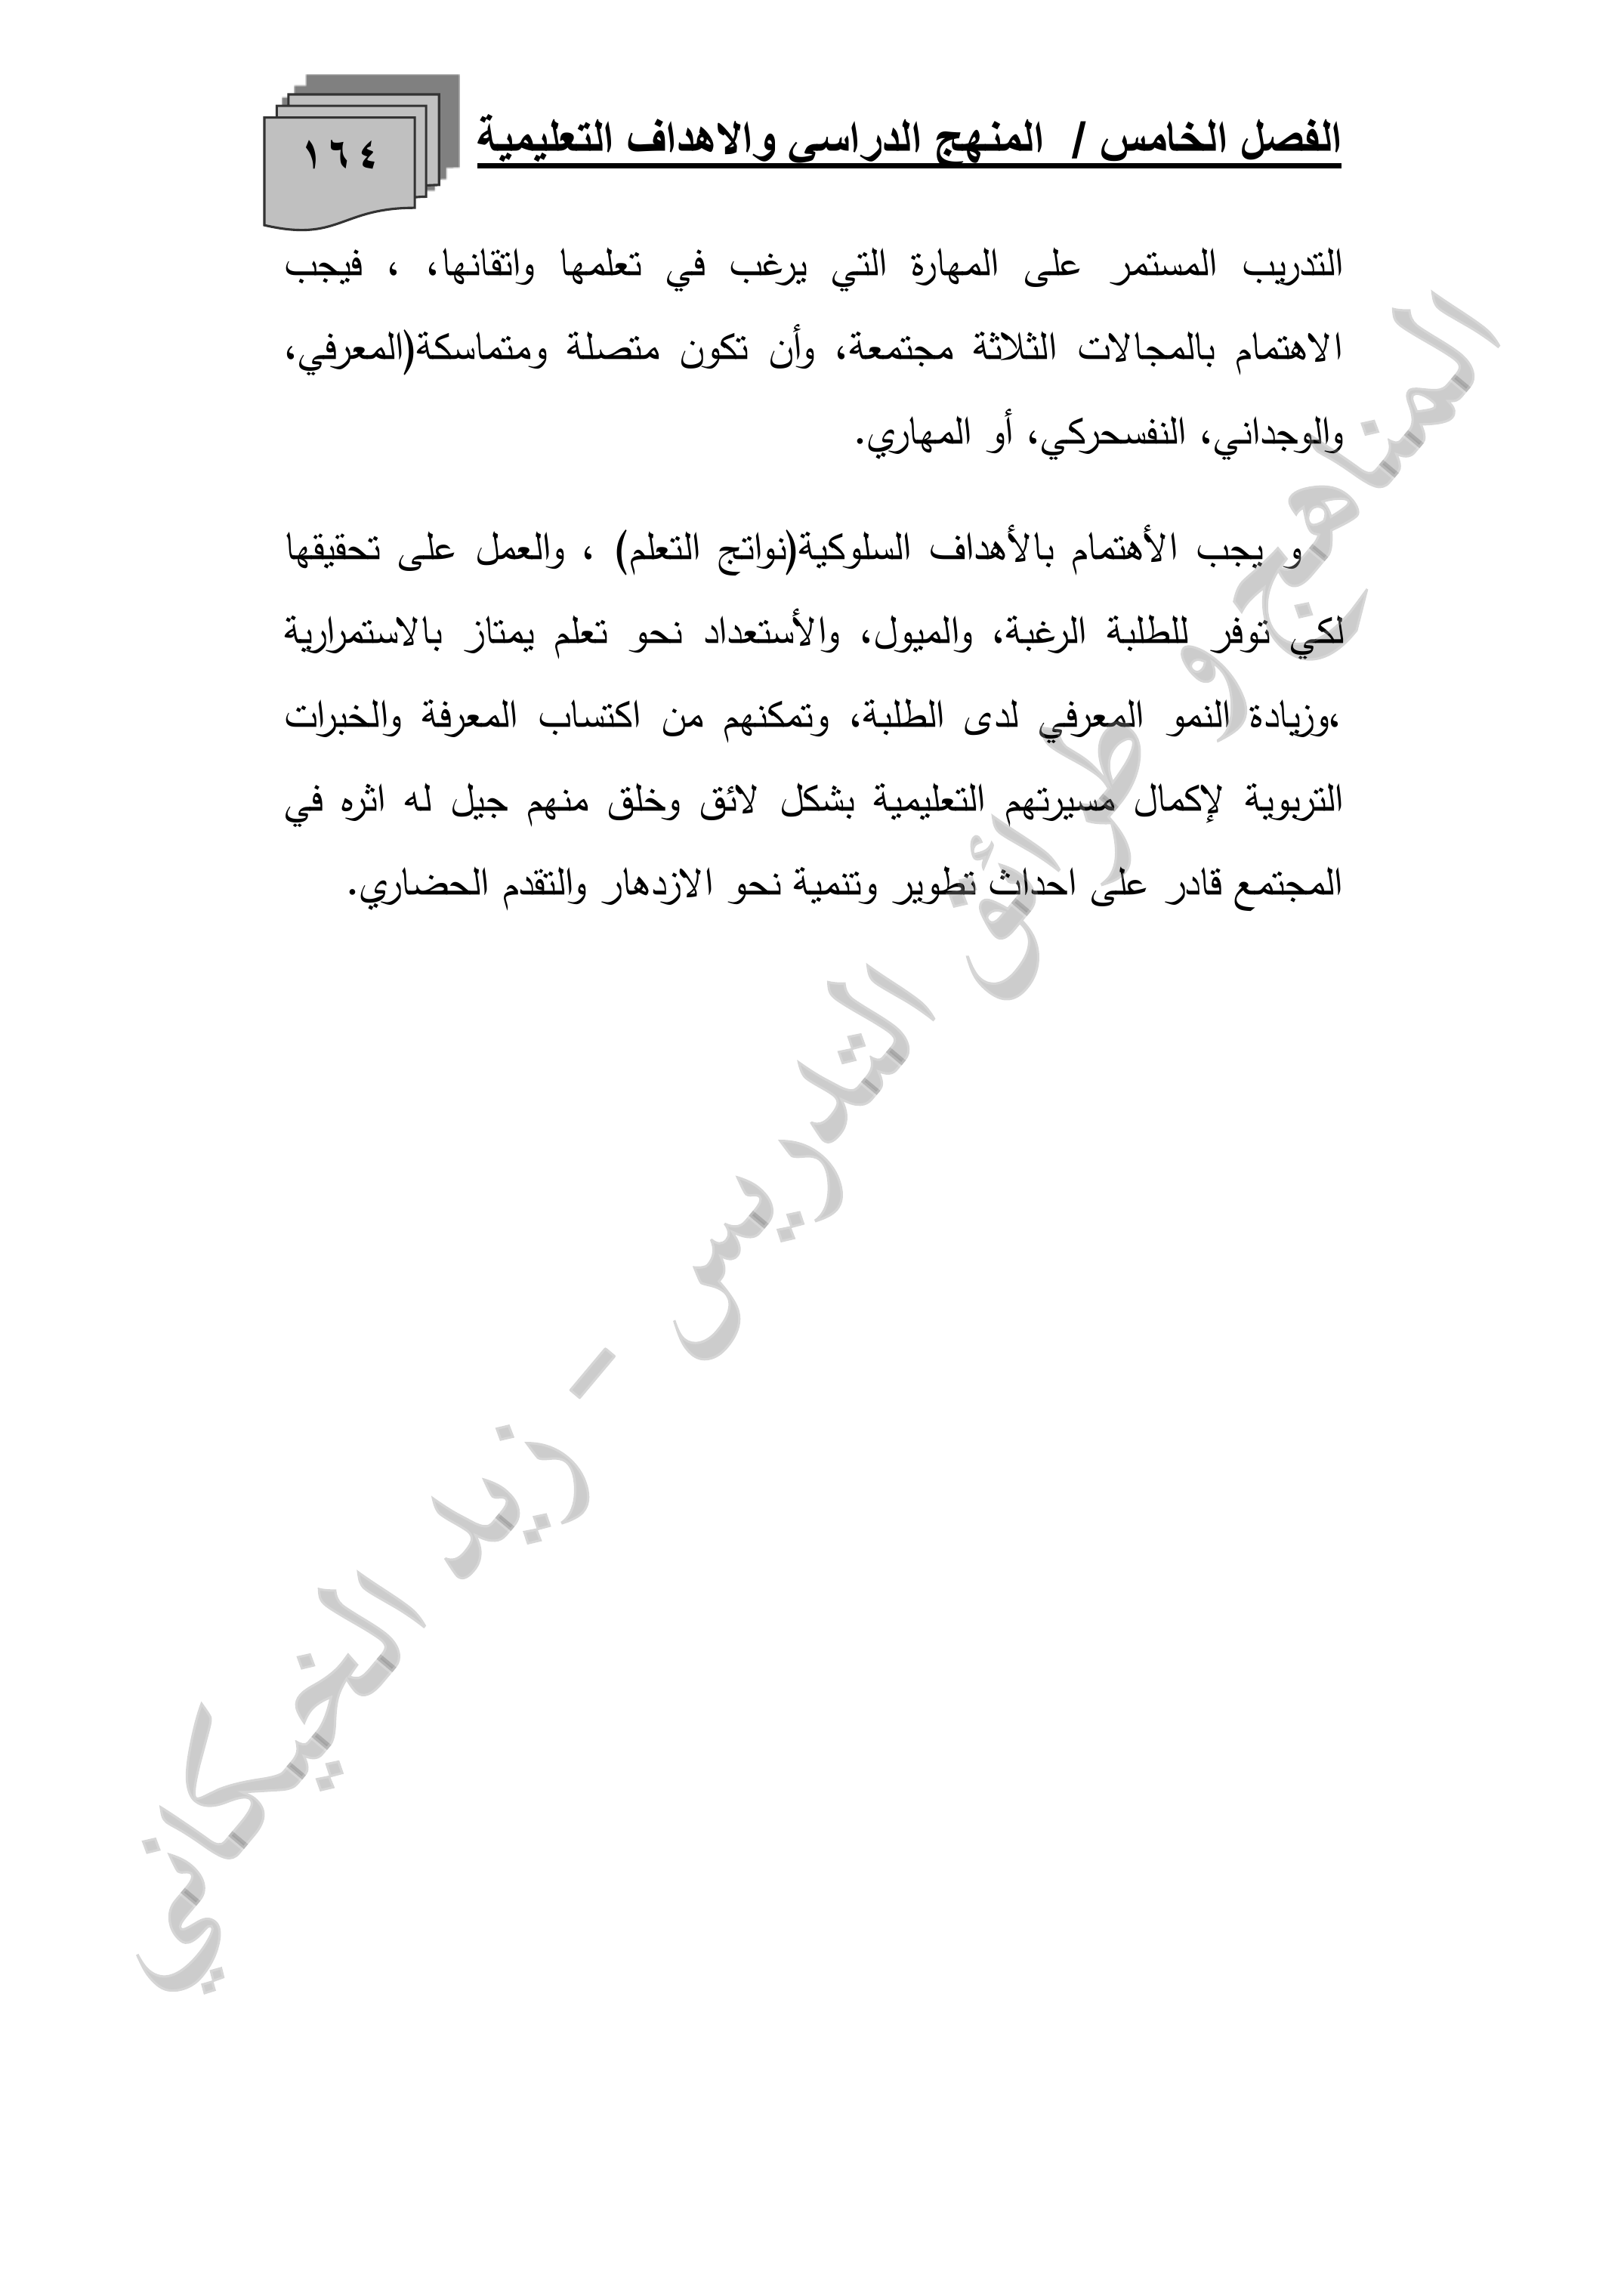 الفصل الخامس / المنهج الدراسي والاهداف التعليمية
١٦٤
التدريب المستمر على المهارة التي يرغب في تعلمها واتقانها، ، فيجب
الاهتمام بالمجالات الثلاثة مجتمعة، وأن تكون متصلة ومتماسكة(المعرفي،
والوجداني، النفسحركي، أو المهاري.
و يجب الأهتمام بالأهداف السلوكية(نواتج التعلم) ، والعمل على تحقيقها
لكي توفر للطلبة الرغبة، والميول، والأستعداد نحو تعلم يمتاز بالاستمرارية
،وزيادة النمو المعرفي لدى الطلبة، وتمكنهم من اكتساب المعرفة والخبرات
التربوية لإكمال مسيرتهم التعليمية بشكل لائق وخلق منهم جيل له اثره في
المجتمع قادر على احداث تطوير وتنمية نحو الازدهار والتقدم الحضاري.
المناهج و طرائق التدريس - زيد الخيكاني